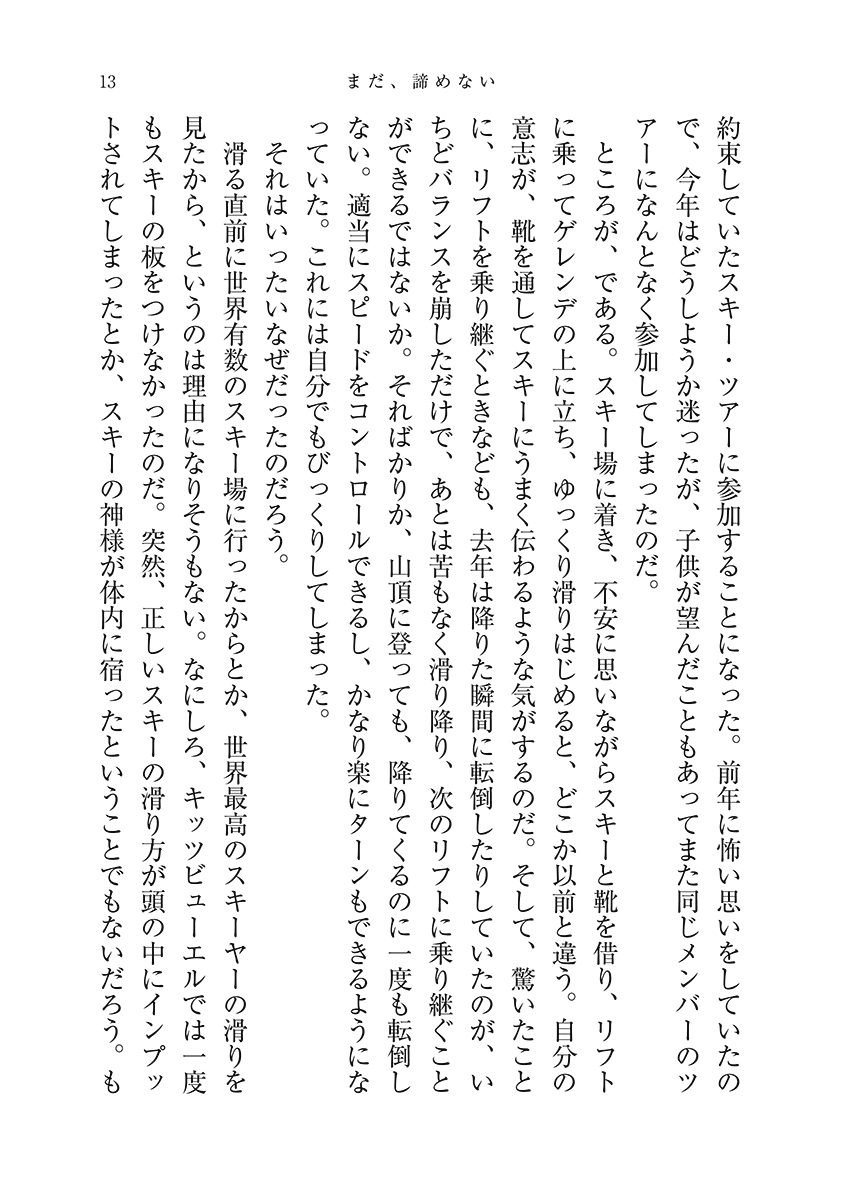 13
まだ、諦めない
約束していたスキー・ツアーに参加することになった。前年に怖い思いをしていたの
で、今年はどうしようか迷ったが、子供が望んだこともあってまた同じメンバーのツ
アーになんとなく参加してしまったのだ。
ところが、である。スキー場に着き、不安に思いながらスキーと靴を借り、リフト
に乗ってゲレンデの上に立ち、ゆっくり滑りはじめると、どこか以前と違う。自分の
意志が、靴を通してスキーにうまく伝わるような気がするのだ。そして、驚いたこと
に、リフトを乗り継ぐときなども、去年は降りた瞬間に転倒したりしていたのが、い
ちどバランスを崩しただけで、あとは苦もなく滑り降り、次のリフトに乗り継ぐこと
ができるではないか。そればかりか、山頂に登っても、降りてくるのに一度も転倒し
ない。適当にスピードをコントロールできるし、かなり楽にターンもできるようにな
っていた。これには自分でもびっくりしてしまった。
それはいったいなぜだったのだろう。
滑る直前に世界有数のスキー場に行ったからとか、世界最高のスキーヤーの滑りを
見たから、というのは理由になりそうもない。なにしろ、キッツビューエルでは一度
もスキーの板をつけなかったのだ。突然、正しいスキーの滑り方が頭の中にインプッ
トされてしまったとか、スキーの神様が体内に宿ったということでもないだろう。も